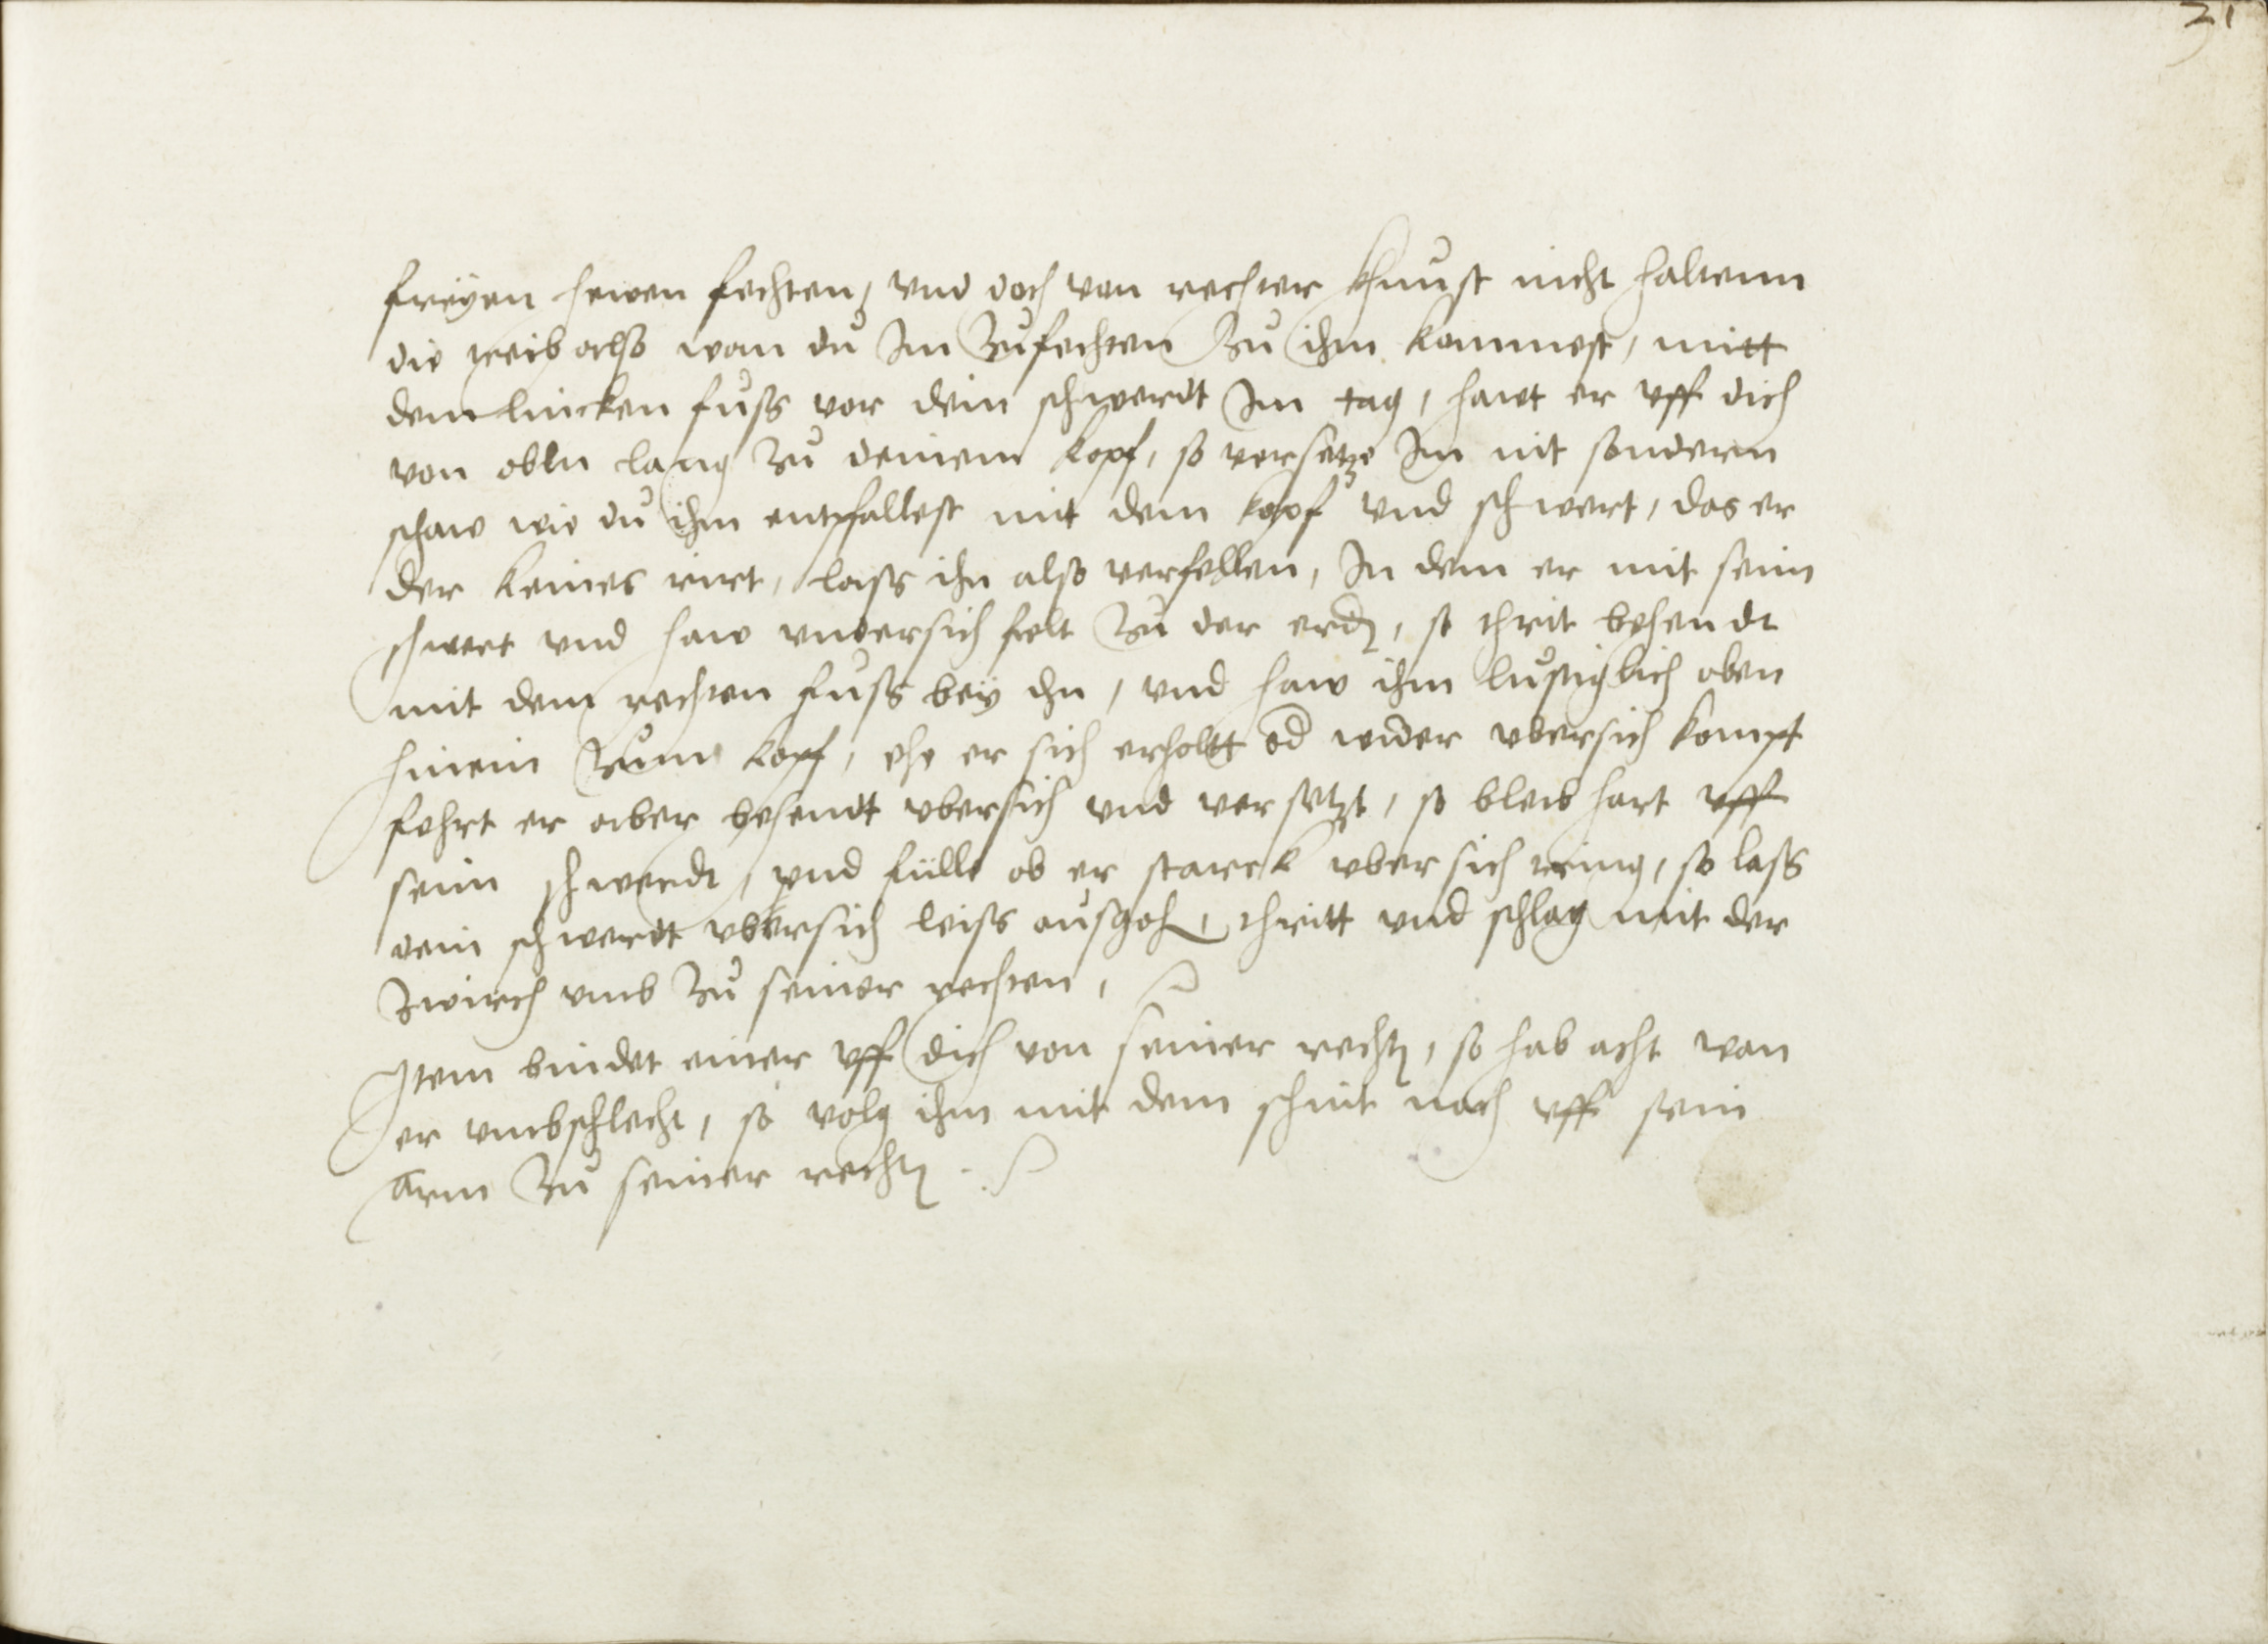 31
freyen hewen fechten, vnd doch von rechter khunst nicht haltenn
die treib also wan du Im Zufechten Zu ihm kommest, mitt
dem lincken fuss vor dein schwerdt Im tag, hawt er vff dich
von obln lang Zu deinem kopf, so versetze Im nit sondern
schaw wie du ihm entpfallest mit dem kopf vnd schwert, das er
der keines rirt, lass ihn also verfellen, In dem er mit seim
schwert vnd haw vndersich felt Zu der erdẽ, so thrit behendt
mit dem rechten fuss bey ihn, vnd haw ihm lustiglich oben
hinein Zum kopf, ehe er sich erholtt od wider vbersich kompt
fehrt er aber behendt vbersich vnd versetzt, so bleib hart vff
seim schwerdt, vnd fülle ob er starck vbersich tring, so lass
dein schwerdt vbersich leiss aussgoh, thritt vnd schlag mit der
Zwirch vmb Zu seiner rechten,
Item bindet einer vff dich von seiner rechtẽ, so hab acht wan
er vmbschlecht, so volg ihm mit dem schnit nach vff sein
arm Zu seiner rechtẽ